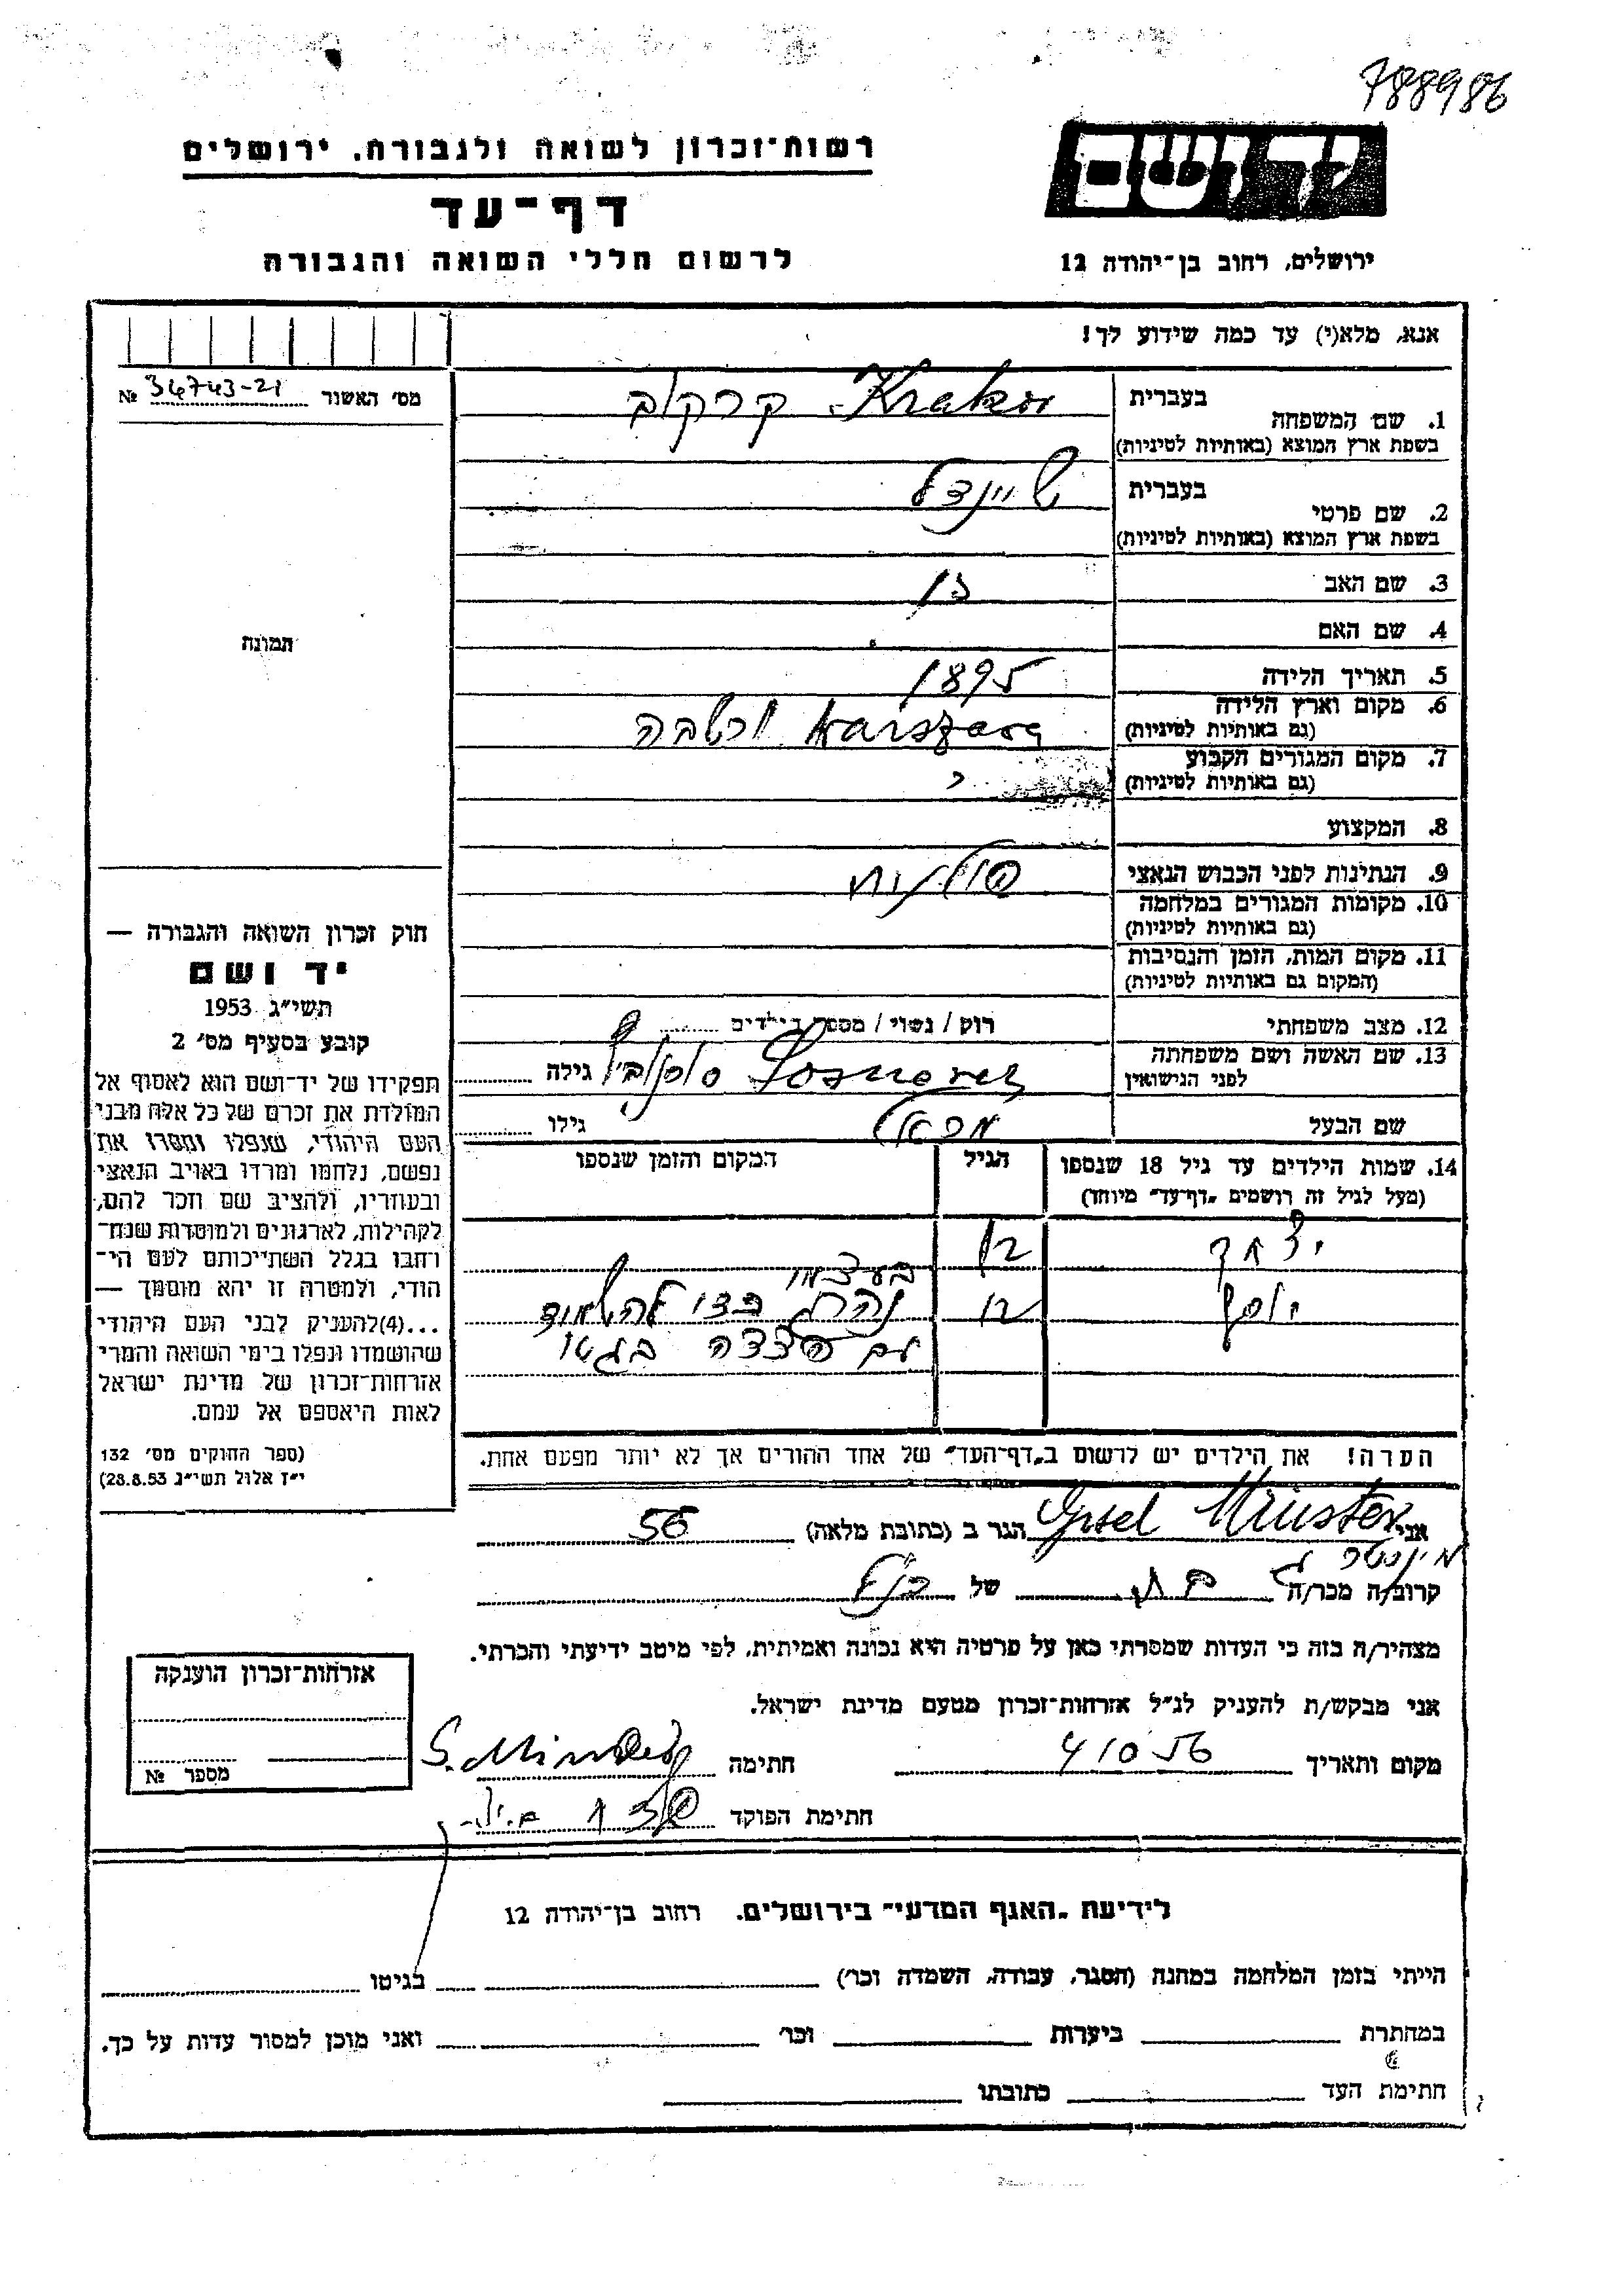 788986
יד ושם
רשות־זכרון לשואה ולגבורה, ירושלים
דף־עד
לרשום חללי השואה והגבורה
ירושלים, רחוב בן־יהודה 12
אנא, מלא(י) עד כמה שידוע לך!
מס׳ האשור № 34743-21
1. שם המשפחה
בעברית
Krakow קרקוב
בשפת ארץ המוצא (באותיות לטיניות)
2. שם פרטי
בעברית
שיינדל
בשפת ארץ המוצא (באותיות לטיניות)
3. שם האב
4. שם האם
5. תאריך הלידה 1895
6. מקום וארץ הלידה
(גם באותיות לטיניות)
Warszawa ורשבה
7. מקום המגורים הקבוע
(גם באותיות לטיניות)
8. המקצוע
9. הנתינות לפני הכבוש הנאצי פולנית
10. מקומות המגורים במלחמה
(גם באותיות לטיניות)
11. מקום המות, הזמן והנסיבות
(המקום גם באותיות לטיניות)
12. מצב משפחתי רוק / נשוי / מספר הילדים
13. שם האשה ושם משפחתה
לפני הנישואין
גילה
שם הבעל
גילו
14. שמות הילדים עד גיל 18 שנספו
(מעל לגיל זה רושמים „דף־עד״ מיוחד)
הגיל
המקום והזמן שנספו
יצחק
יוסף
הערה! את הילדים יש לרשום ב„דף־העד״ של אחד ההורים אך לא יותר מפעם אחת.
תמונה
חוק זכרון השואה והגבורה —
יד ושם
תשי״ג 1953
קובע בסעיף מס׳ 2
תפקידו של יד־ושם הוא לאסוף אל
המולדת את זכרם של כל אלה מבני
העם היהודי, שנפלו ומסרו את
נפשם, נלחמו ומרדו באויב הנאצי
ובעוזריו, ולהציב שם וזכר להם,
לקהילות, לארגונים ולמוסדות שנח־
רחבו בגלל השתייכותם לעם הי־
הודי, ולמטרה זו יהא מוסמך —
...(4)להעניק לבני העם היהודי
שהושמדו ונפלו בימי השואה והמרי
אזרחות־זכרון של מדינת ישראל
לאות היאספם אל עמם.
(ספר החוקים מס׳ 132
י״ז אלול תשי״ג 28.8.53)
אני הגר ב (כתובת מלאה) 56
מינסטר
קרוב/ה מכר/ה של
מצהיר/ה בזה כי העדות שמסרתי כאן על פרטיה היא נכונה ואמיתית, לפי מיטב ידיעתי והכרתי.
אני מבקש/ת להעניק לנ״ל אזרחות־זכרון מטעם מדינת ישראל.
מקום ותאריך 4 10 56 חתימה
חתימת הפוקד
אזרחות־זכרון הוענקה
מספר №
לידיעת „האגף המדעי״ בירושלים. רחוב בן־יהודה 12
הייתי בזמן המלחמה במחנה (הסגר, עבודה, השמדה וכר׳) בגיטו
במחתרת ביערות וכר׳ ואני מוכן למסור עדות על כך.
חתימת העד כתובתו